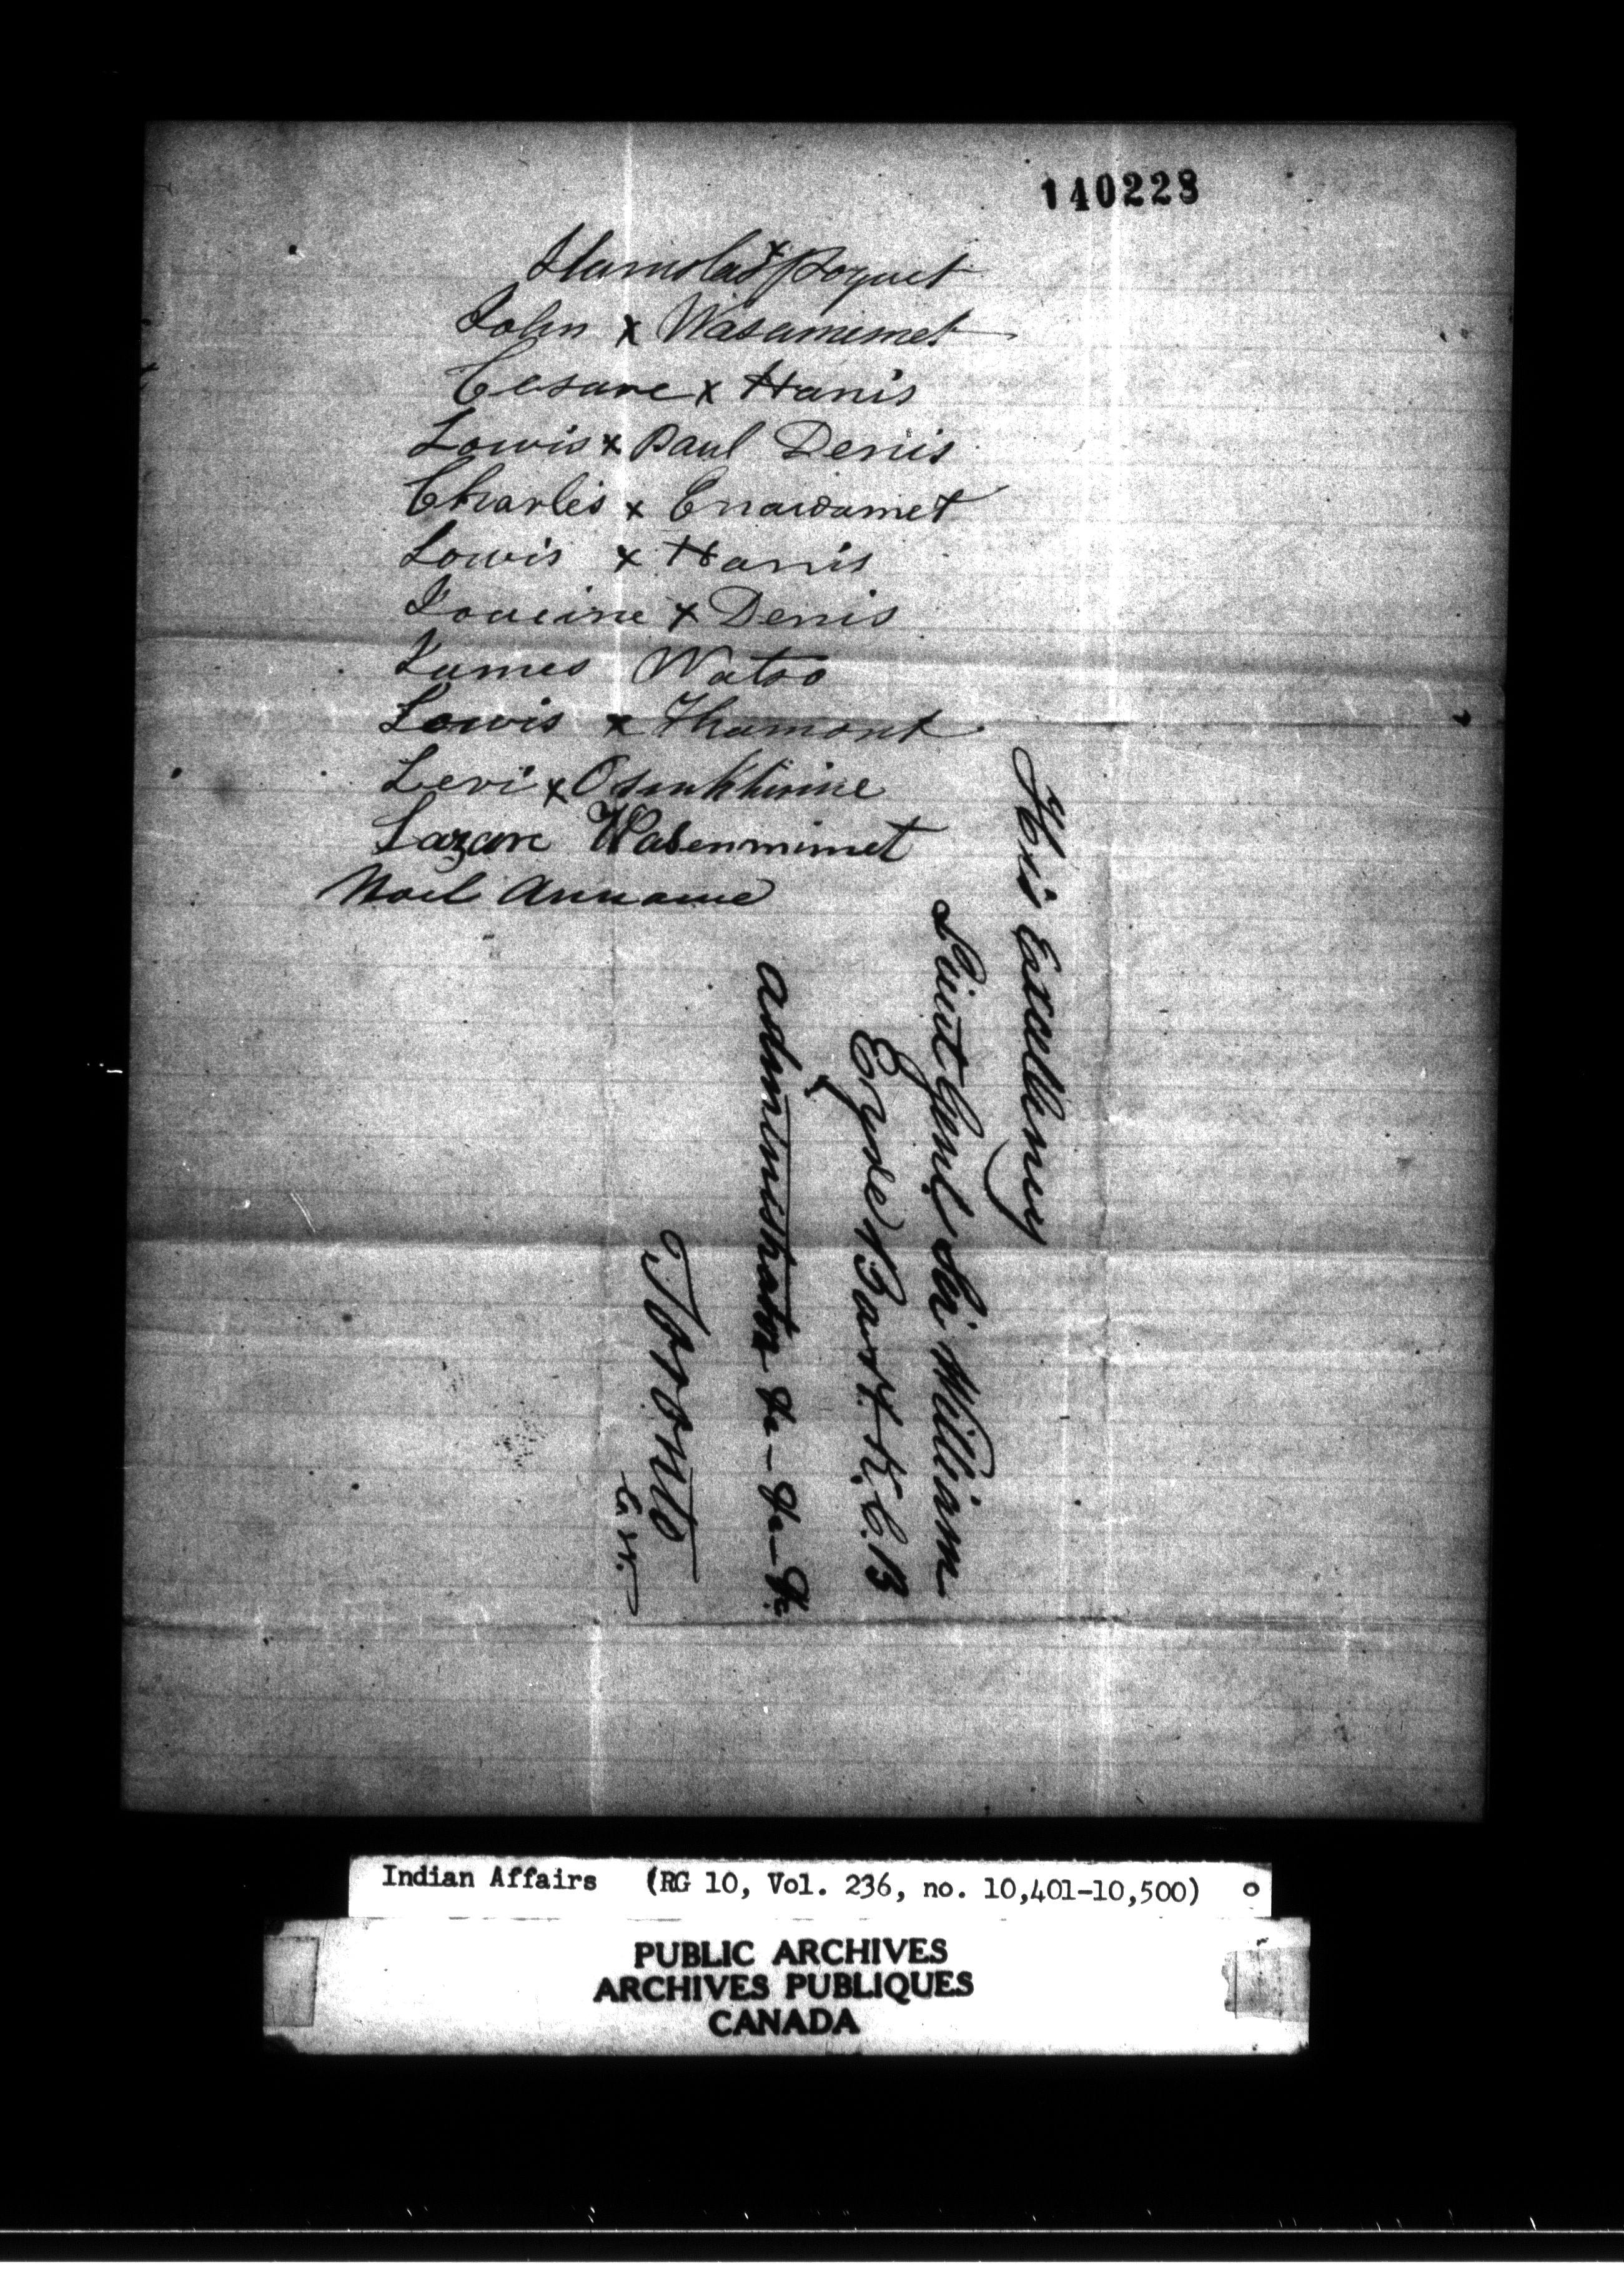 140223
Stanislas x Poquet
John x Wasamimet
Cesare x Hanis
Lowis x Paul Denis
Charles x Enawamet
Lowis x Hanis
x Denis
James Watso
Lowis x Thamont
Levi x Osunkhirine
Lazare Wasenmimet
Noel Annance
His Excellency
Lieut Genl. Sir William
Eyre Bart K.C.B
Administrator &c - &c - &c
Toronto
C. W.
Indian Affairs (RG 10, Vol. 236, no. 10,401-10,500)
PUBLIC ARCHIVES
ARCHIVES PUBLIQUES
CANADA